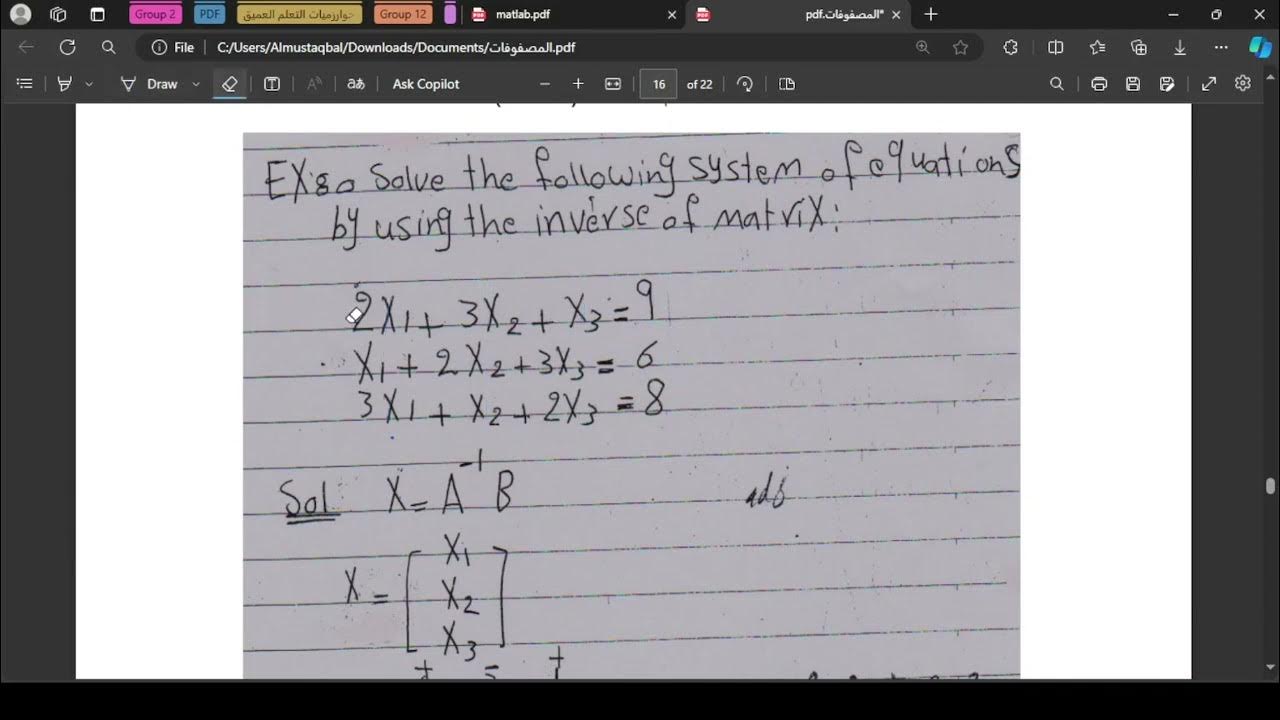 Group 2 PDF خوارزميات التعلم العميق Group 12 matlab.pdf المصفوفات.pdf*
File C:/Users/Almustaqbal/Downloads/Documents/المصفوفات.pdf
Draw aあ Ask Copilot 16 of 22
EX8o Solve the following system of equations
by using the inverse of matriX:
2X1 + 3X2 + X3 = 9
X1 + 2X2 + 3X3 = 6
3X1 + X2 + 2X3 = 8
Sol X = A⁻¹ B adj
X = [ X1
X2
X3 ]
+ - +